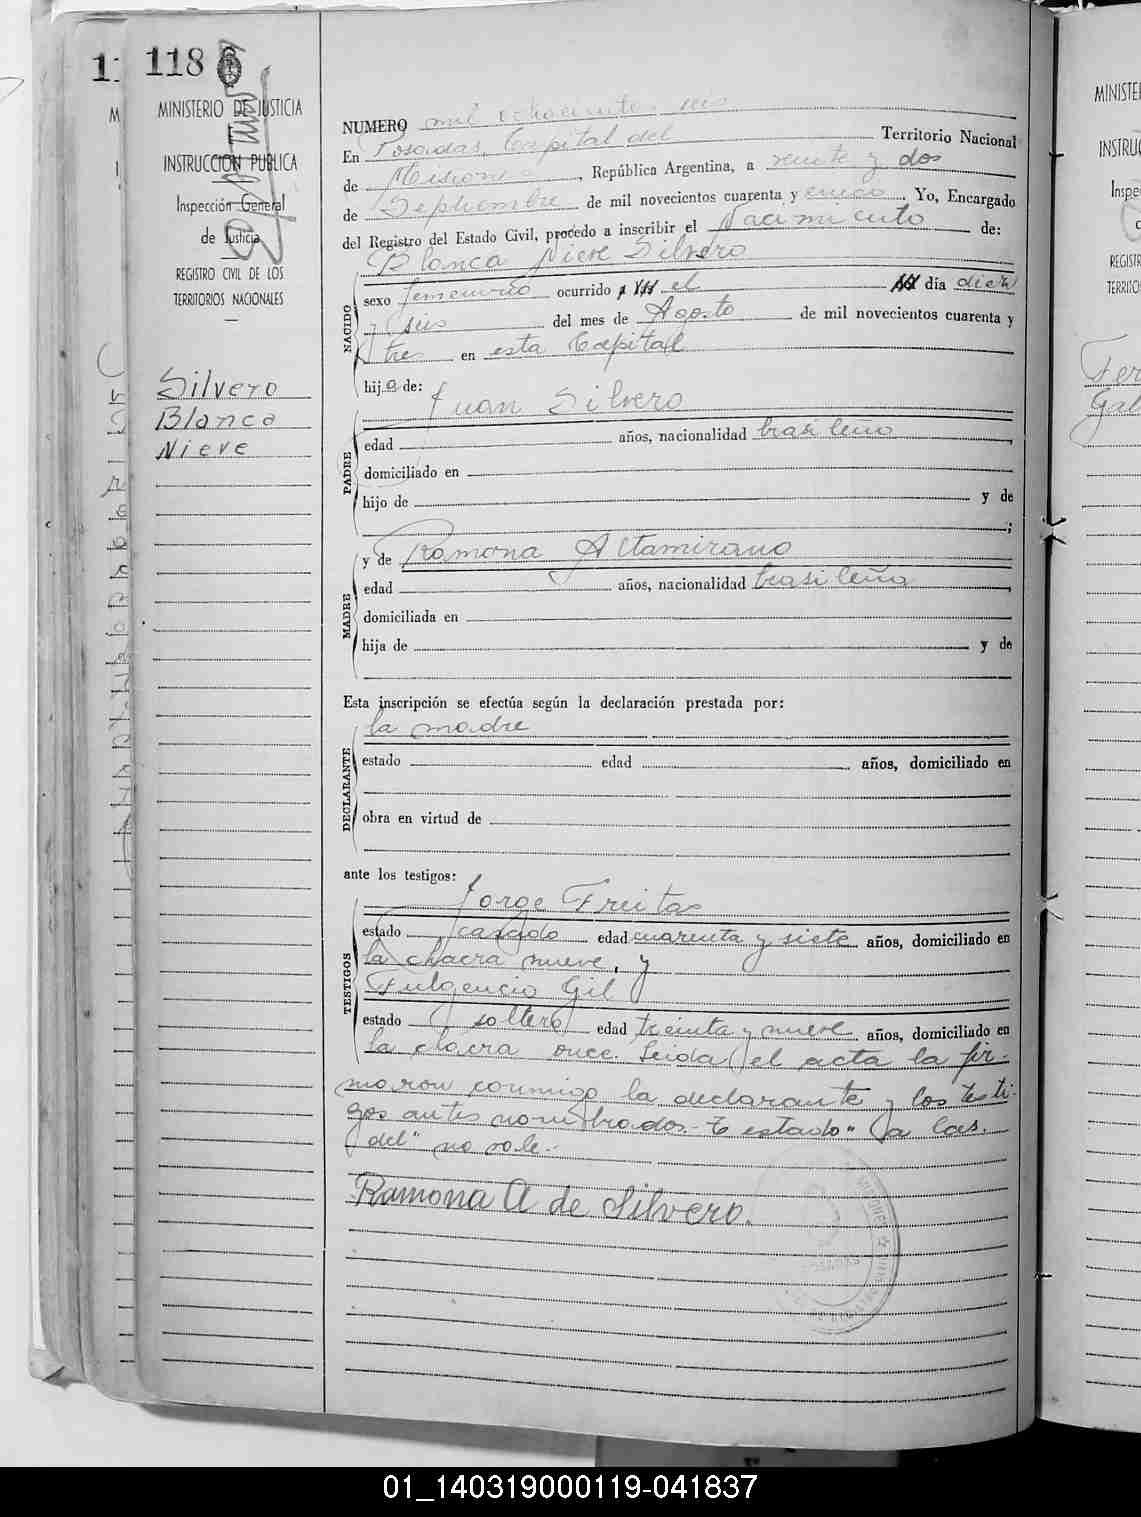 118
MINISTERIO DE JUSTICIA
INSTRUCCION PUBLICA
Inspección General
de Justicia
REGISTRO CIVIL DE LOS
TERRITORIOS NACIONALES
Silvero
Blanca
Nieve
NUMERO mil ochocientos seis
En Posadas, Capital del Territorio Nacional
de Misiones, República Argentina, a veinte y dos
de Septiembre de mil novecientos cuarenta y cinco. Yo, Encargado
del Registro del Estado Civil, procedo a inscribir el Nacimiento de:
Blanca Nieve Silvero
NACIDO
sexo femenino ocurrido el día diez
y seis del mes de Agosto de mil novecientos cuarenta y
tres en esta Capital
hija de:
Juan Silvero
PADRE
edad años, nacionalidad brasileño
domiciliado en
hijo de y de
;
y de Ramona Altamirano
MADRE
edad años, nacionalidad brasileña
domiciliada en
hija de y de
Esta inscripción se efectúa según la declaración prestada por:
la madre
DECLARANTE
estado edad años, domiciliado en
obra en virtud de
ante los testigos:
Jorge Freitas
TESTIGOS
estado casado edad cuarenta y siete años, domiciliado en
la chacra nueve, y
Fulgencio Gil
estado soltero edad treinta y nueve años, domiciliado en
la chacra once. Leida el acta la fir-
maron conmigo la declarante y los testi-
gos antes nombrados.- E estado" "a las.
del" no vale.-
Ramona A de Silvero.
MINISTE
INSTRU
Inspe
REGISTR
TERRITO
Fer
Gal
01_140319000119-041837